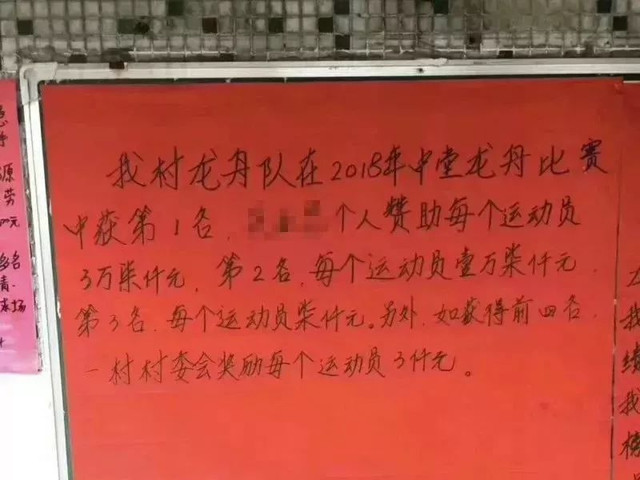 我村龙舟队在2018年中堂龙舟比赛
中获第1名，个人赞助每个运动员
3万柒仟元，第2名，每个运动员壹万柒仟元，
第3名，每个运动员柒仟元。另外，如获得前四名，
一村村委会奖励每个运动员3仟元。
源
劳
元
多名
情.
来场
我
绩
我
榜